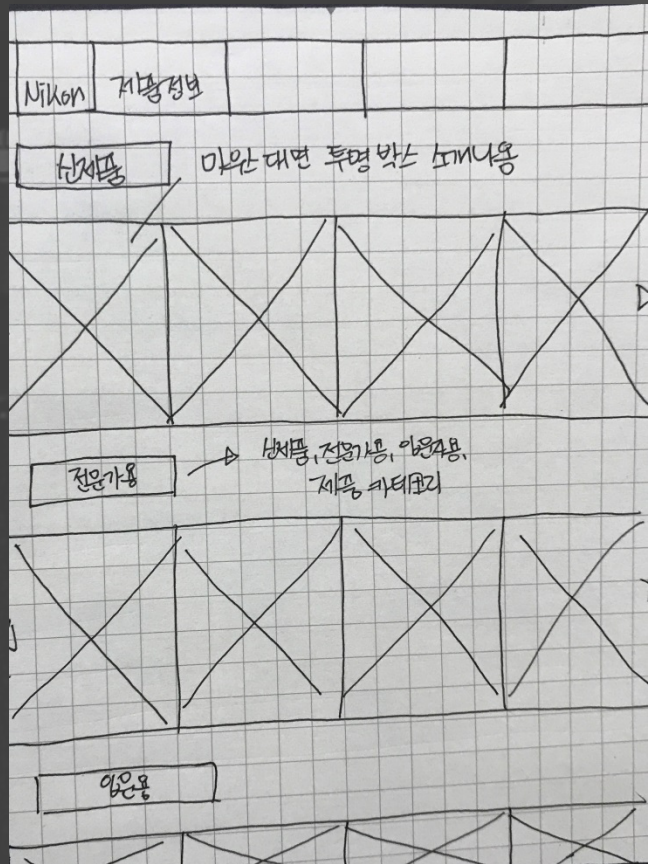 Nikon 제품정보
신제품
마우스 대면 투명 박스 소개내용
전문가용
신제품, 전문가용, 입문자용,
제품 카테고리
입문용